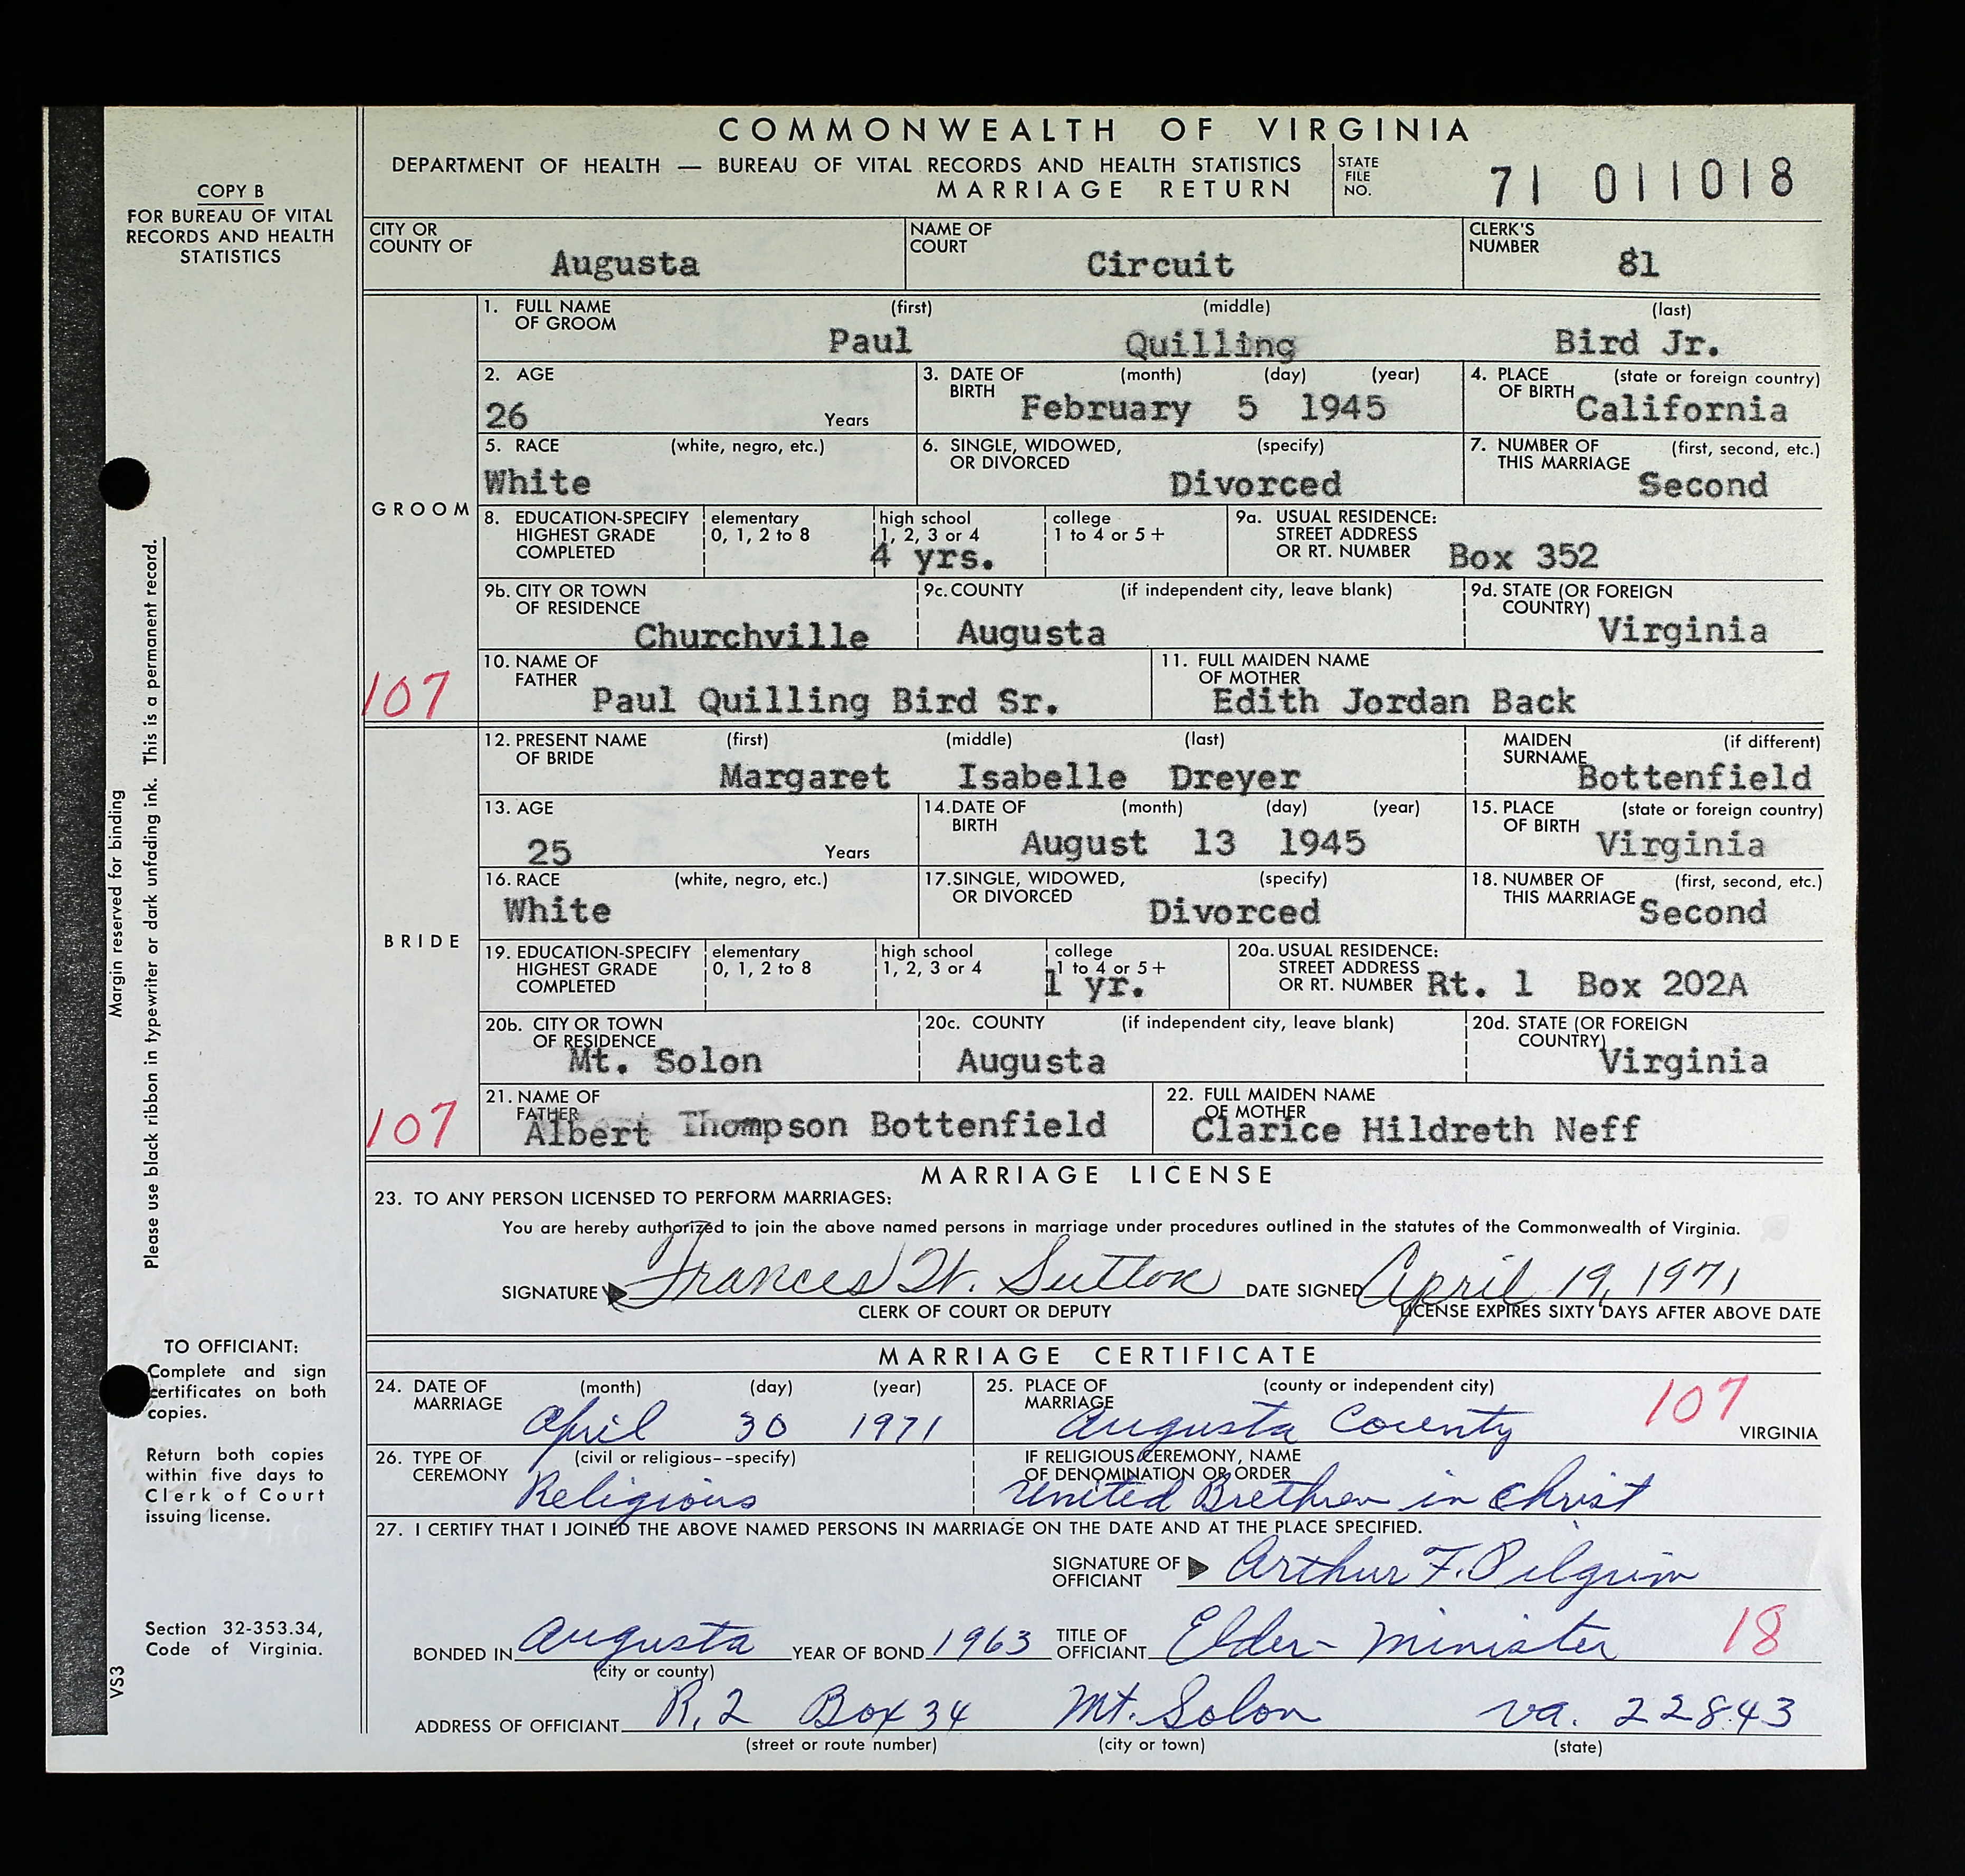 COMMONWEALTH OF VIRGINIA
DEPARTMENT OF HEALTH — BUREAU OF VITAL RECORDS AND HEALTH STATISTICS
MARRIAGE RETURN
STATE FILE NO. 71 011018
COPY B
FOR BUREAU OF VITAL
RECORDS AND HEALTH
STATISTICS
CITY OR COUNTY OF Augusta
NAME OF COURT Circuit
CLERK'S NUMBER 81
GROOM
1. FULL NAME OF GROOM (first) Paul (middle) Quilling (last) Bird Jr.
2. AGE 26 Years
3. DATE OF BIRTH (month) (day) (year) February 5 1945
4. PLACE OF BIRTH (state or foreign country) California
5. RACE (white, negro, etc.) White
6. SINGLE, WIDOWED, OR DIVORCED (specify) Divorced
7. NUMBER OF THIS MARRIAGE (first, second, etc.) Second
8. EDUCATION-SPECIFY HIGHEST GRADE COMPLETED elementary 0, 1, 2 to 8 high school 1, 2, 3 or 4 4 yrs. college 1 to 4 or 5+
9a. USUAL RESIDENCE: STREET ADDRESS OR RT. NUMBER Box 352
9b. CITY OR TOWN OF RESIDENCE Churchville
9c. COUNTY (if independent city, leave blank) Augusta
9d. STATE (OR FOREIGN COUNTRY) Virginia
107
10. NAME OF FATHER Paul Quilling Bird Sr.
11. FULL MAIDEN NAME OF MOTHER Edith Jordan Back
BRIDE
12. PRESENT NAME OF BRIDE (first) (middle) (last) Margaret Isabelle Dreyer
MAIDEN SURNAME (if different) Bottenfield
13. AGE 25 Years
14. DATE OF BIRTH (month) (day) (year) August 13 1945
15. PLACE OF BIRTH (state or foreign country) Virginia
16. RACE (white, negro, etc.) White
17. SINGLE, WIDOWED, OR DIVORCED (specify) Divorced
18. NUMBER OF THIS MARRIAGE (first, second, etc.) Second
19. EDUCATION-SPECIFY HIGHEST GRADE COMPLETED elementary 0, 1, 2 to 8 high school 1, 2, 3 or 4 college 1 to 4 or 5+ 1 yr.
20a. USUAL RESIDENCE: STREET ADDRESS OR RT. NUMBER Rt. 1 Box 202A
20b. CITY OR TOWN OF RESIDENCE Mt. Solon
20c. COUNTY (if independent city, leave blank) Augusta
20d. STATE (OR FOREIGN COUNTRY) Virginia
107
21. NAME OF FATHER Albert Thompson Bottenfield
22. FULL MAIDEN NAME OF MOTHER Clarice Hildreth Neff
MARRIAGE LICENSE
23. TO ANY PERSON LICENSED TO PERFORM MARRIAGES:
You are hereby authorized to join the above named persons in marriage under procedures outlined in the statutes of the Commonwealth of Virginia.
SIGNATURE Frances W. Sutton DATE SIGNED April 19, 1971
CLERK OF COURT OR DEPUTY
LICENSE EXPIRES SIXTY DAYS AFTER ABOVE DATE
MARRIAGE CERTIFICATE
24. DATE OF MARRIAGE (month) (day) (year) April 30 1971
25. PLACE OF MARRIAGE (county or independent city) Augusta County 107 VIRGINIA
26. TYPE OF CEREMONY (civil or religious--specify) Religious
IF RELIGIOUS CEREMONY, NAME OF DENOMINATION OR ORDER United Brethren in Christ
27. I CERTIFY THAT I JOINED THE ABOVE NAMED PERSONS IN MARRIAGE ON THE DATE AND AT THE PLACE SPECIFIED.
SIGNATURE OF OFFICIANT Arthur F. Pilgrim
BONDED IN Augusta (city or county) YEAR OF BOND 1963 TITLE OF OFFICIANT Elder - Minister 18
ADDRESS OF OFFICIANT R, 2 Box 34 Mt. Solon Va. 22843
(street or route number) (city or town) (state)
Margin reserved for binding
Please use black ribbon in typewriter or dark unfading ink. This is a permanent record.
TO OFFICIANT:
Complete and sign
certificates on both
copies.
Return both copies
within five days to
Clerk of Court
issuing license.
Section 32-353.34,
Code of Virginia.
VS3